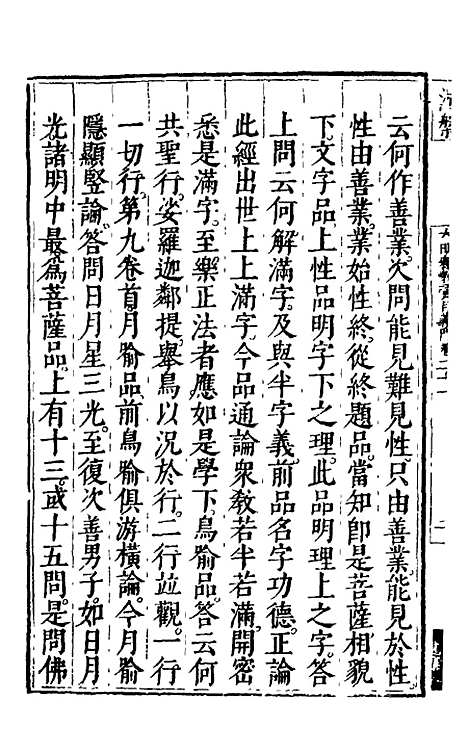 云何作善業。次問能見難見性。只由善業。能見於性。
性由善業。業始性終。從終題品。當知卽是菩薩相貌
下文字品上性品明字下之理。此品明理上之字。答
上問云何解滿字。及與半字義。前品名字功德。正論
此經出世上上滿字。今品通論衆教若半若滿。開密
悉是滿字。至樂正法者。應如是學下。鳥喻品。答云何
共聖行。娑羅迦鄰提。舉鳥以況於行。二行並觀。一行
一切行。第九卷首。月喻品。前鳥喻俱游橫論。今月喻
隱顯豎論。答問日月星三光。至復次善男子。如日月
光諸明中最爲菩薩品。上有十三。或十五問。是問佛